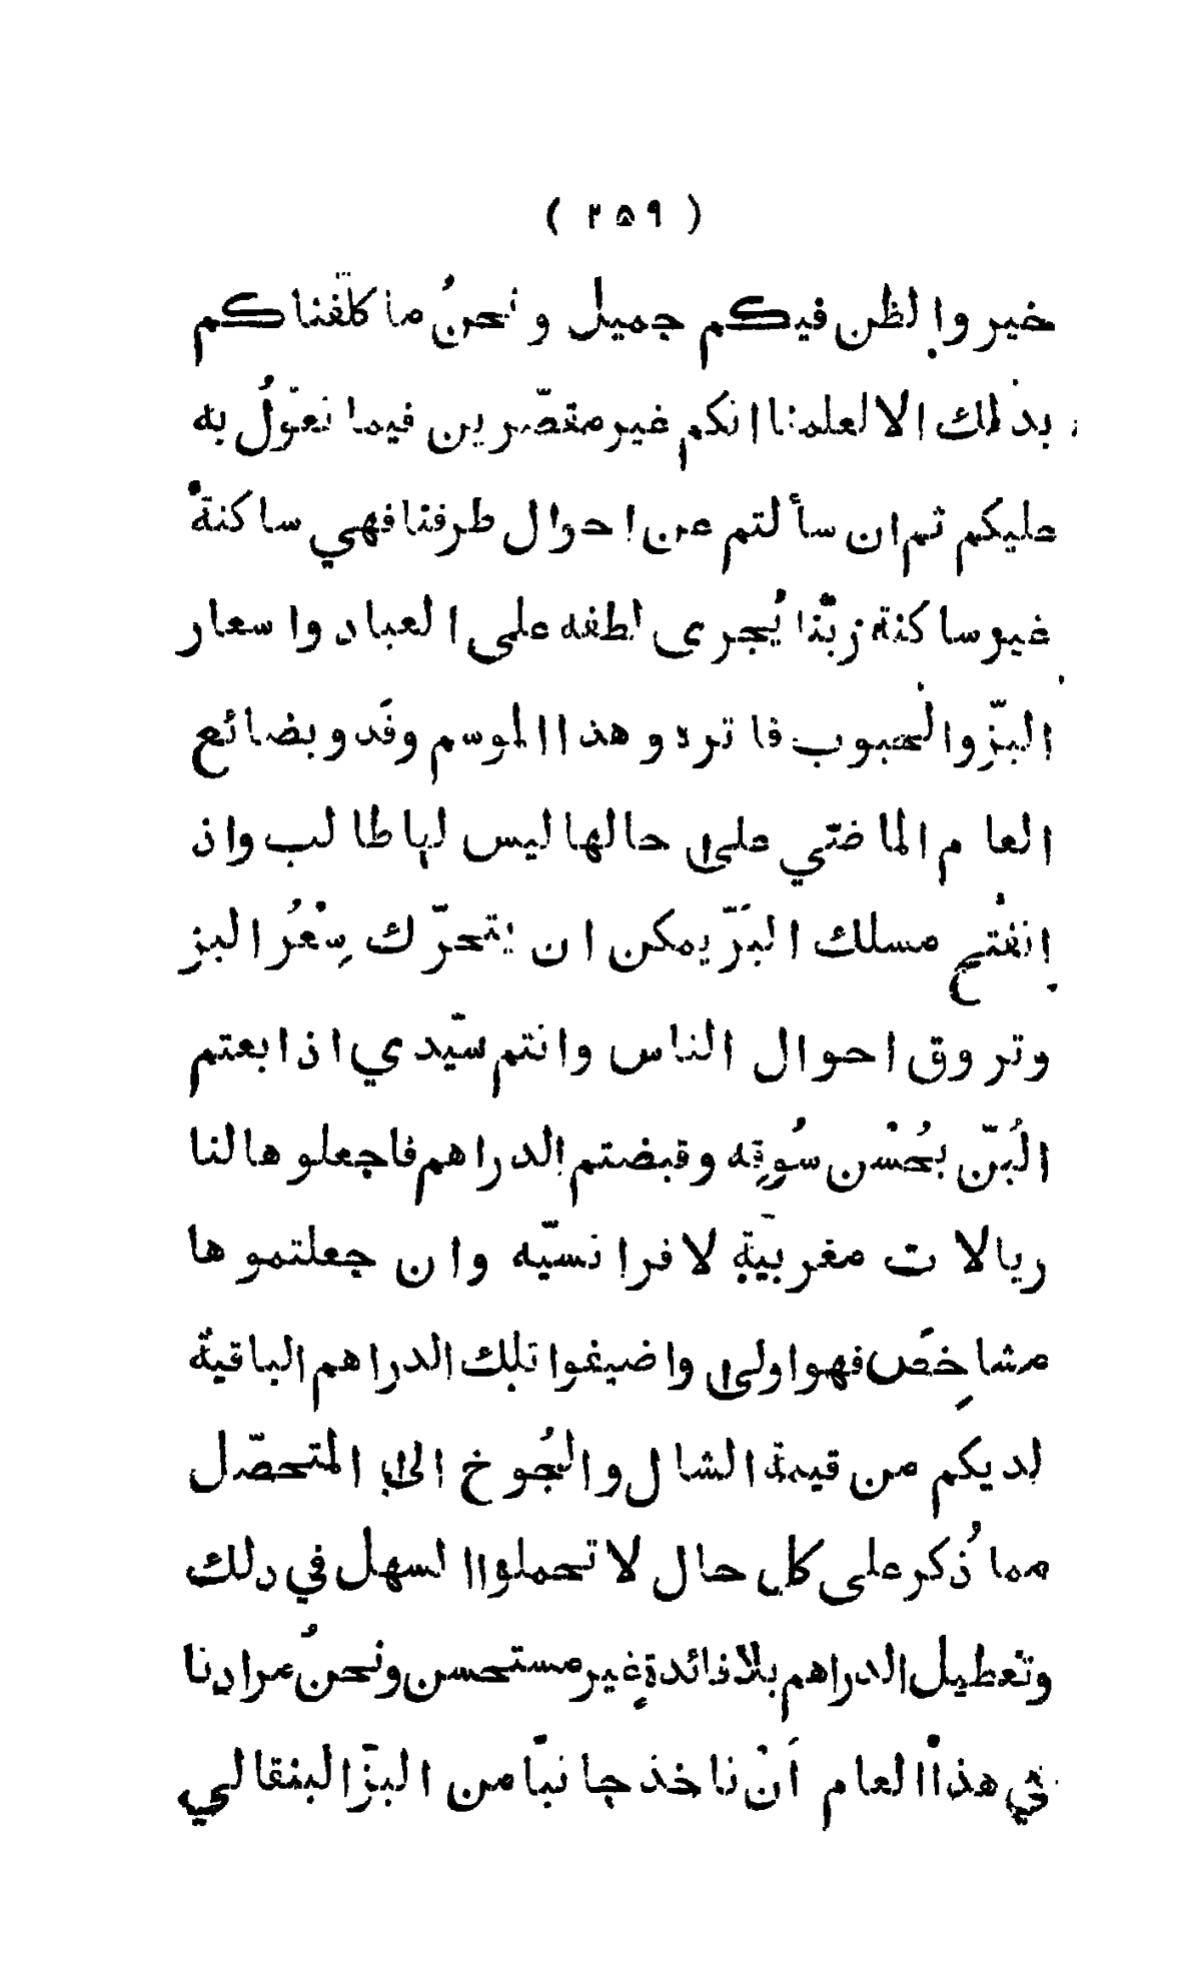 ( ٢٥٩ )
خير والظن فيكم جميل ونحنُ ما كلّفناكم
بذلك الا لعلمنا انكم غير مقصّرين فيما نعوّلُ به
عليكم ثم ان سألتم عن احوال طرفنا فهي ساكنةْ
غير ساكنة ربّنا يُجرى لطفه على العباد واسعار
البزّ والحبوب فاتره وهذا الموسم وفَد وبضائع
العام الماضي على حالها ليس لها طالب واذ
إنفْتح مسلك البَرّ يمكن ان يتحرّك سِعْرُ البز
وتروق احوال الناس وانتم سيّدي اذا بعتم
البُنّ بحُسْن سُوقِه وقبضتم الدراهم فاجعلوها لنا
ريالات مغربيّة لا فرانسيّه وان جعلتموها
مشاخِصَ فهو اولى واضيفوا تلك الدراهم الباقية
لديكم من قيمة الشال والجُوخ الى المتحصّل
مما ذُكر على كل حال لا تحملوا السهل في دلك
وتعطيل الدراهم بلا فائدةٍ غير مستحسن ونحنُ مرادنا
في هذا العام أنْ ناخذ جانبًا من البزّ البنقالي